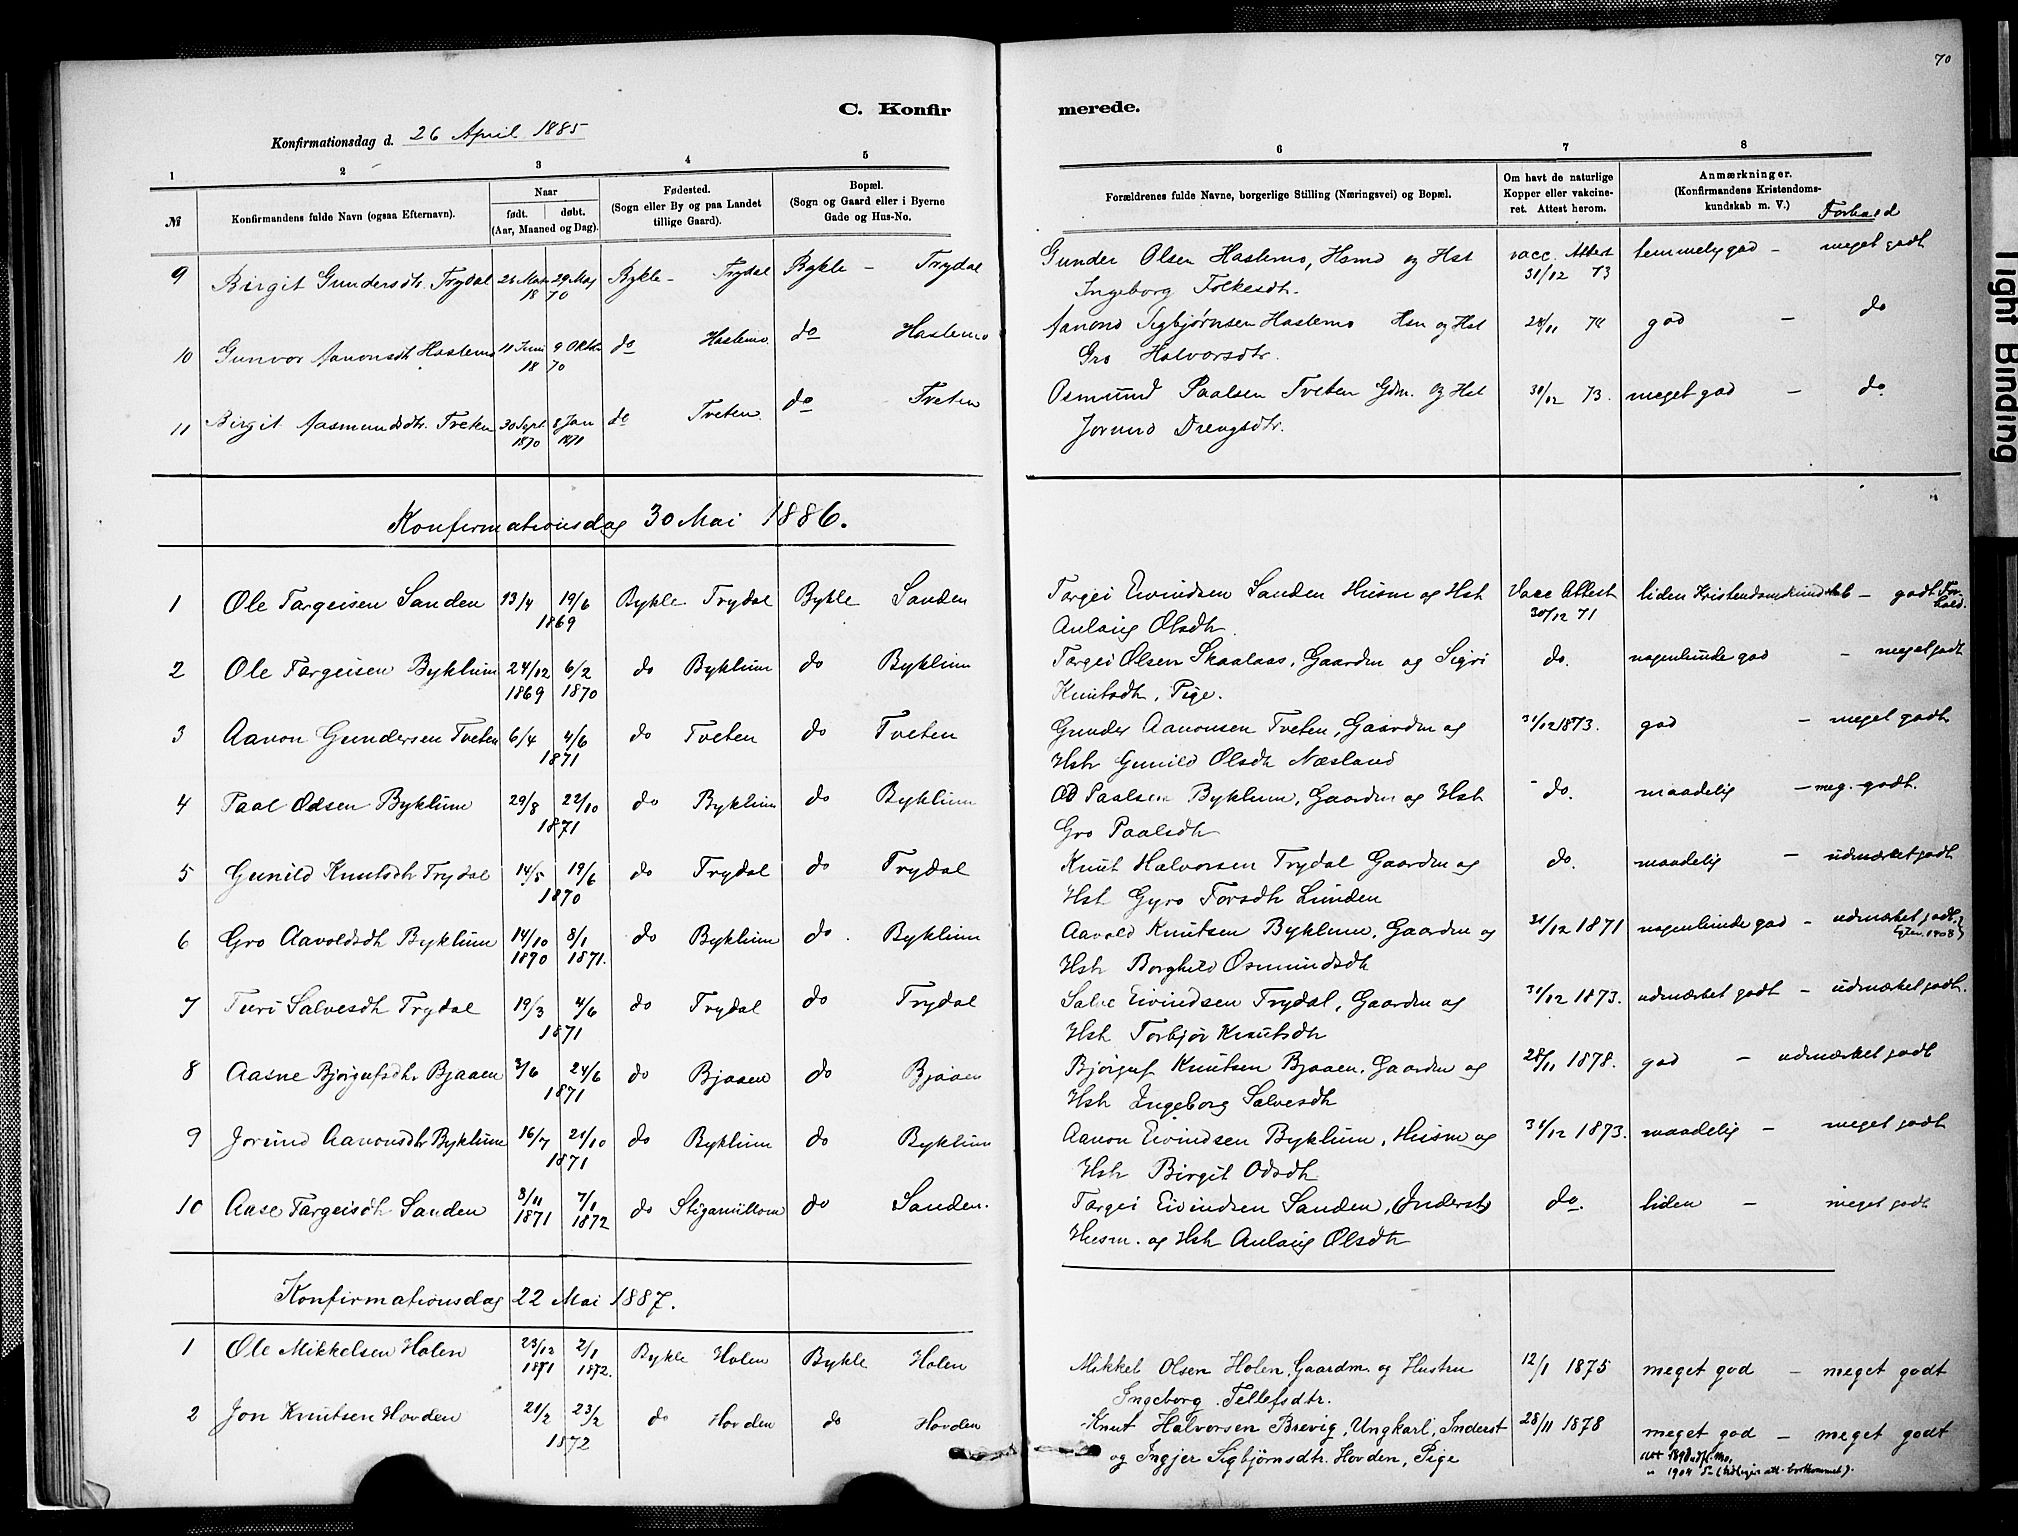 70
C. Konfirmerede.
Konfirmationsdag d. 26 April 1885
1 2 3 4 5 6 7 8
№
Konfirmandens fulde Navn (ogsaa Efternavn).
Naar født. døbt. (Aar, Maaned og Dag).
Fødested. (Sogn eller By og paa Landet tillige Gaard).
Bopæl. (Sogn og Gaard eller i Byerne Gade og Hus-No.
Forældrenes fulde Navne, borgerlige Stilling (Næringsvei) og Bopæl.
Om havt de naturlige Kopper eller vakcineret. Attest herom.
Anmærkninger. (Konfirmandens Kristendomskundskab m. V.)
Forhold
9 Birgit Gundersdtr. Trydal 29 Maj 1870 Bykle - Trydal Bykle - Trydal Gunder Olsen Haslemo, Hsmd og Hst vacc. Attest 31/12 73 temmelig god - meget godt
Ingeborg Folkesdtr.
10 Gunvor Aanonsdtr Haslemo 11 Juni 9 Oktbr 1870 do Haslemo do Haslemo Aanond Sigbjørnsen Haslemo Hsm og Hst 28/11 78 god - do
Gro Halvorsdtr.
11 Birgit Aasmundsdtr. Tveten 30 Sept 1870 8 Jan 1871 do Tveten do Tveten Osmund Paalsen Tveten Gdm. og Hst 31/12 73. meget god - do
Jorund Drengsdtr.
Konfirmationsdag 30 Mai 1886.
1 Ole Targeisen Sanden 13/4 19/6 1869 Bykle Trydal Bykle Sanden Targei Eivindsen Sanden Husm og Hst Vacc Attest 30/12 71 liden Kristendomskundskab - godt Forhold.
Aulaug Olsdtr.
2 Ole Targeisen Byklum 24/12 1869 6/2 1870 do Byklum do Byklum Targei Olsen Skaalaas, Gaardm og Sigri do. nogenlunde god - meget godt
Knutsdtr, Pige.
3 Aanon Gundersen Tveten 6/4 4/6 1871 do Tveten do Tveten Gunder Aanonsen Tveten, Gaardm og 31/12 1873. god - meget godt
Hstr Gunild Olsdtr Næsland
4 Paal Odsen Byklum 29/8 22/10 1871 do Byklum do Byklum Od Paalsen Byklum, Gaardm og Hst do. maadelig - meg. godt.
Gro Paalsdtr
5 Gunild Knutsdtr Trydal 14/5 19/6 1870 do Trydal do Trydal Knut Halvorsen Trydal Gaardm og do. maadelig - udmærket godt
Hst Gyro Torsdtr Lunden
6 Gro Aavoldsdtr Byklum 14/10 1870 8/1 1871. do Byklum do Byklum Aavold Knutsen Byklum, Gaardm og 31/12 1871 nogenlunde god - udmærket godt.
Hstr Borghild Osmundsdtr
7 Turi Salvesdtr Trydal 19/3 4/6 1871 do Trydal do Trydal Salve Eivindsen Trydal, Gaardm og 31/12 1873. udmærket godt - udmærket godt.
Hstr Torbjør Knutsdtr
8 Aasne Bjørgufsdtr Bjaaen 3/6 24/6 1871 do Bjaaen do Bjaaen Bjørguf Knutsen Bjaaen, Gaardm og 28/11 1878. god - udmærket godt
Hstr Ingeborg Salvesdtr
9 Jorund Aanonsdtr Byklum 16/7 21/10 1871 do Byklum do Byklum Aanon Eivindsen Byklum, Husm og 31/12 1873. maadelig - meget godt
Hstr Birgit Odsdtr
10 Aase Targeisdtr Sanden 8/11 1871 7/1 1872 do do Sanden. Targei Eivindsen Sanden, (Inderst) do. liden - meget godt
Husm. og Hstr Aulaug Olsdtr
Konfirmationsdag 22 Mai 1887.
1 Ole Mikkelsen Holen 23/12 1871 2/1 1872. Bykle Holen Bykle Holen Mikkel Olsen Holen, Gaardm. og Hustru 12/1 1875 meget god - meget godt
Ingeborg Tellefsdtr.
2 Jon Knutsen Hovden 21/2 23/2 1872 do Hovden do Hovden Knut Halvorsen Brevig, Ungkarl, Inderst 28/11 1878 meget god - meget godt
og Ingjer Sigbjørnsdtr. Hovden, Pige
Tight Binding